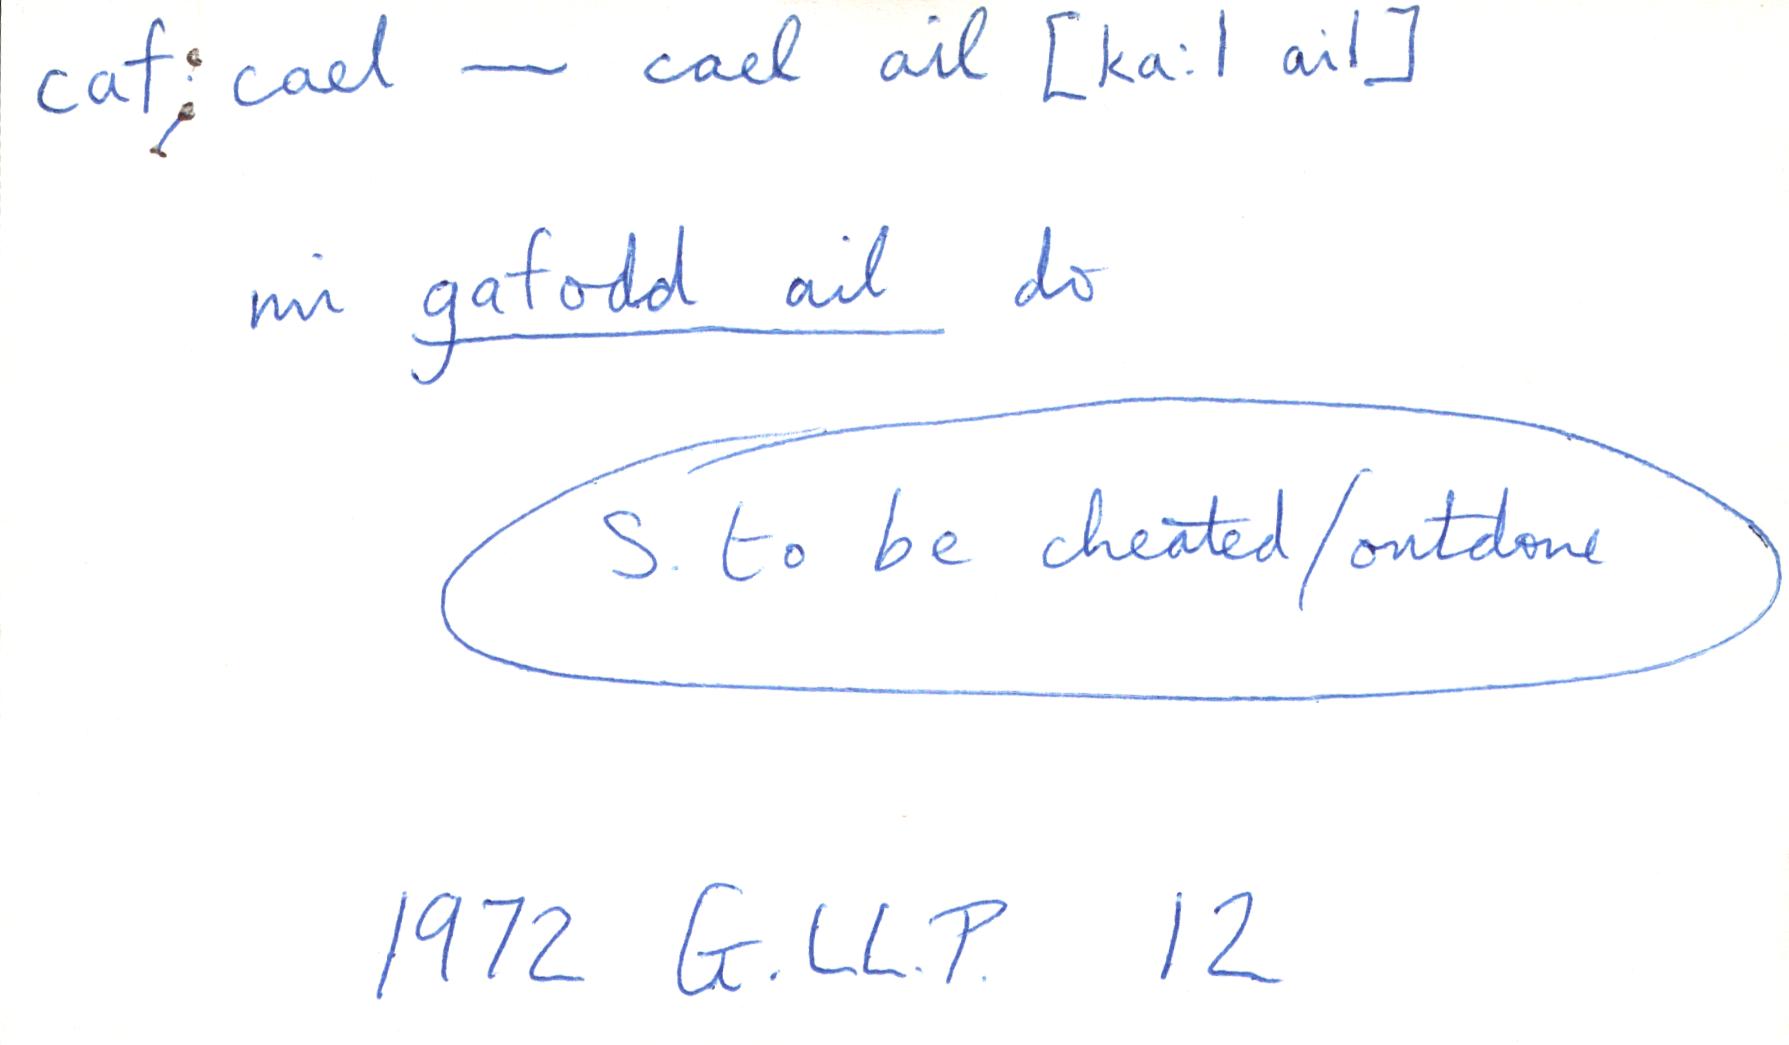 caf: cael — cael ail [ka:l ail]
mi gafodd ail do
S. to be cheated/outdone
1972 G.LL.P. 12